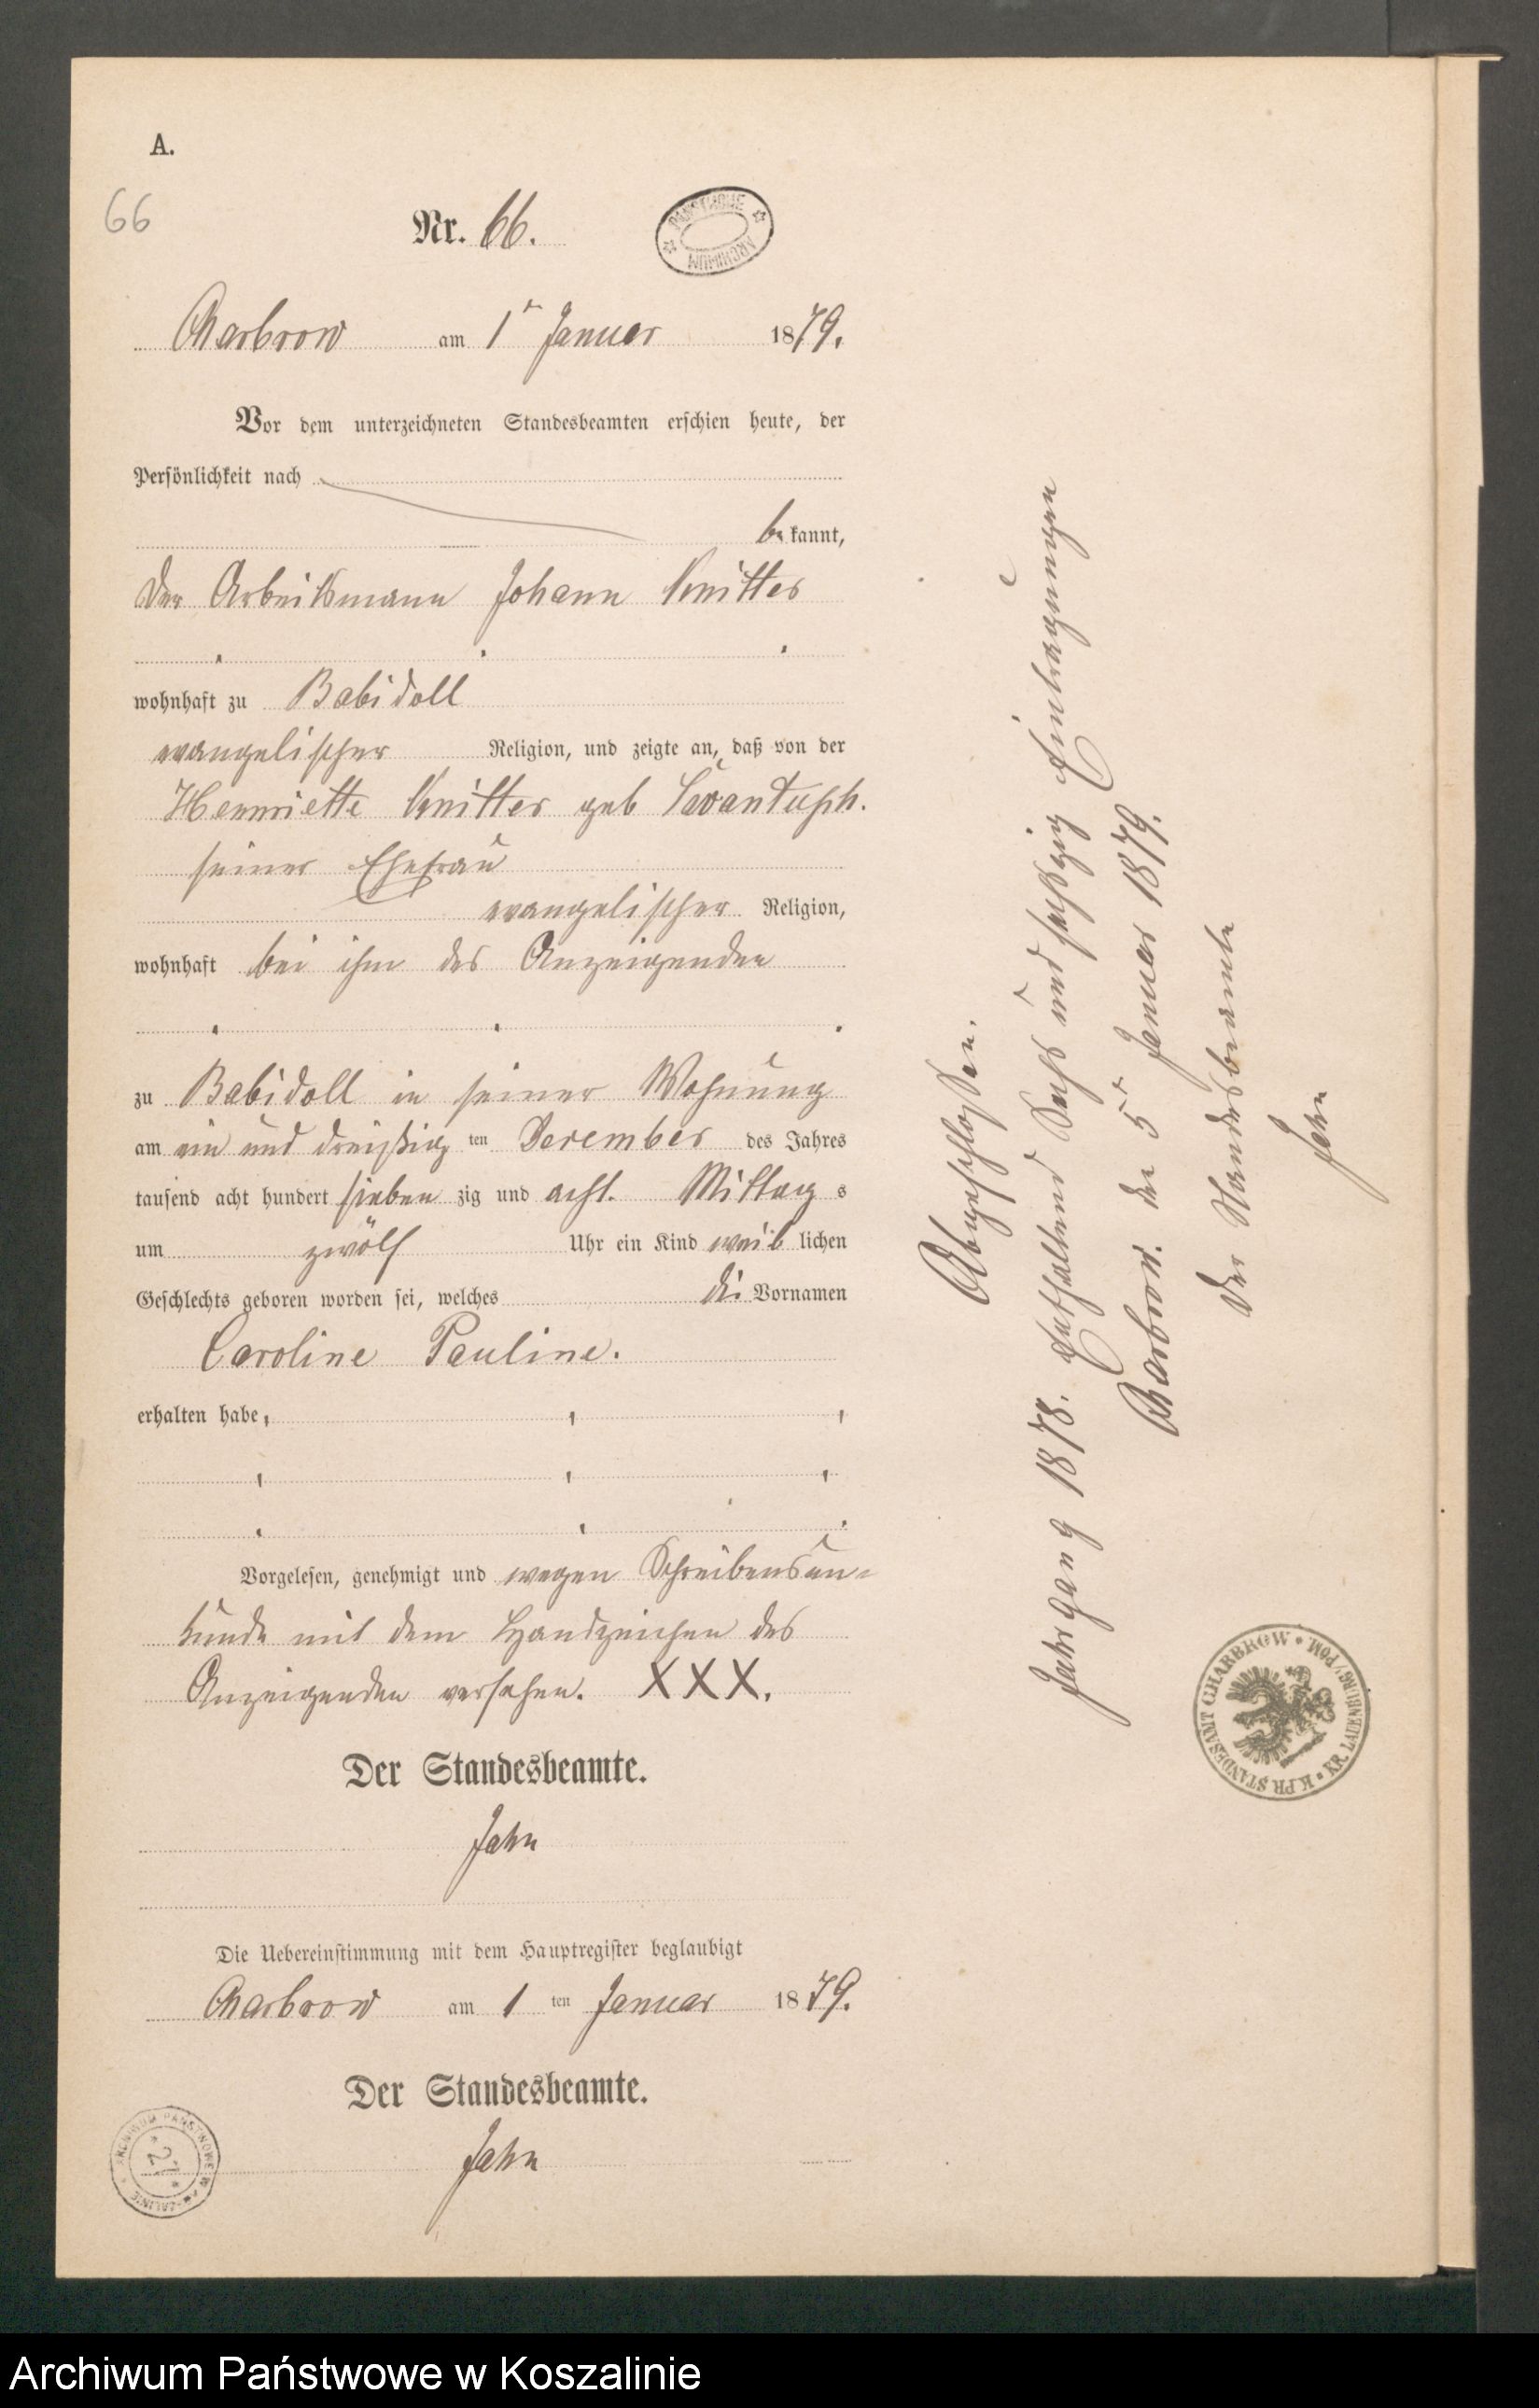 A.
66
Nr. 66.
PAŃSTWOWE ARCHIWUM
Charbrow am 1r Januar 1879.
Vor dem unterzeichneten Standesbeamten erschien heute, der
Persönlichkeit nach
bekannt,
der Arbeitsmann Johann Knitter
wohnhaft zu Babidoll
evangelischer Religion, und zeigte an, daß von der
Henriette Knitter geb
seiner Ehefrau
evangelischer Religion,
wohnhaft bei ihm des Anzeigenden
zu Babidoll in seiner Wohnung
am ein und dreißigten December des Jahres
tausend acht hundert siebenzig und acht. Mittags
um zwölf Uhr ein Kind weiblichen
Geschlechts geboren worden sei, welches die Vornamen
Caroline Pauline.
erhalten habe,
Vorgelesen, genehmigt und wegen Schreibensun-
kunde mit dem Handzeichen des
Anzeigenden versehen. XXX.
Der Standesbeamte.
Jahn
Die Uebereinstimmung mit dem Hauptregister beglaubigt
Charbrow am 1ten Januar 1879.
Der Standesbeamte.
Jahn
ARCHIWUM PAŃSTWOWE W KOSZALINIE
27
Abgeschlossen.
Jahrgang 1878. Enthaltend Sechs und sechszig Eintragungen
Charbrow. den 5r Januar 1879.
Der Standesbeamte
Jahn
K. PR. STANDESAMT CHARBROW * KR. LAUENBURG/POM.
Archiwum Państwowe w Koszalinie